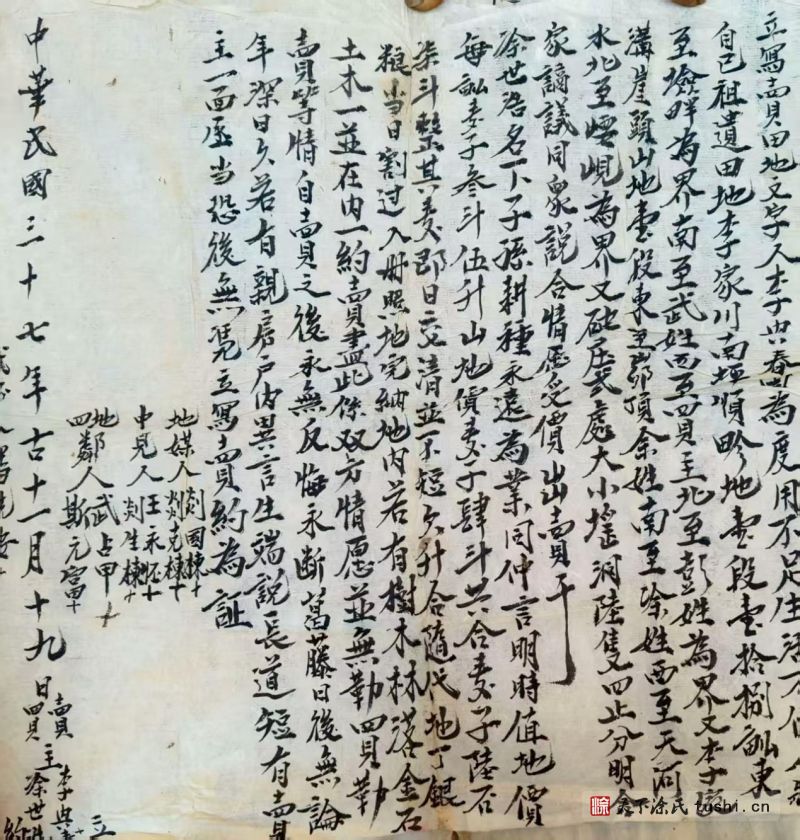 立寫賣田地文字人李典春為度用不足生活不便
自己祖遺田地李家川南垣順畛地壹段壹拾捌畝東
至墝畔為界南至武姓西至買主北至彭姓為界又李家
溝崖頭山地壹段東至峁頂余姓南至涂姓西至天河
水北至崾峴為界又破莊貳處大小窑洞陸隻四止分明
家謫議同衆說合情愿受價出賣于
涂世浩名下子孫耕種永遠為業同仲言明時值地價
每畝麦子叁斗伍升山地價麦子肆斗共合麦子陸石
柒斗整其麦即日交清並不短欠升合隨代地丁銀
粮當日割过入册照地完納地内若有樹木林落金石
土木一並在内一約賣盡此係双方情愿並無勒買勒
賣等情自賣之後永無反悔永断葛藤日後無論
年深日久若有親房户内異言生端說長道短有賣
主一面承当恐後無凭立寫賣約為証
地媒人 剡國棟十
剡克棟十
中見人 王永 十
剡生棟十
地鄰人武占甲十
四 斯元富十
中華民國三十七年古十一月十九
日賣 李典春
買主涂世浩
立
約
天下涂氏 tushi.cn